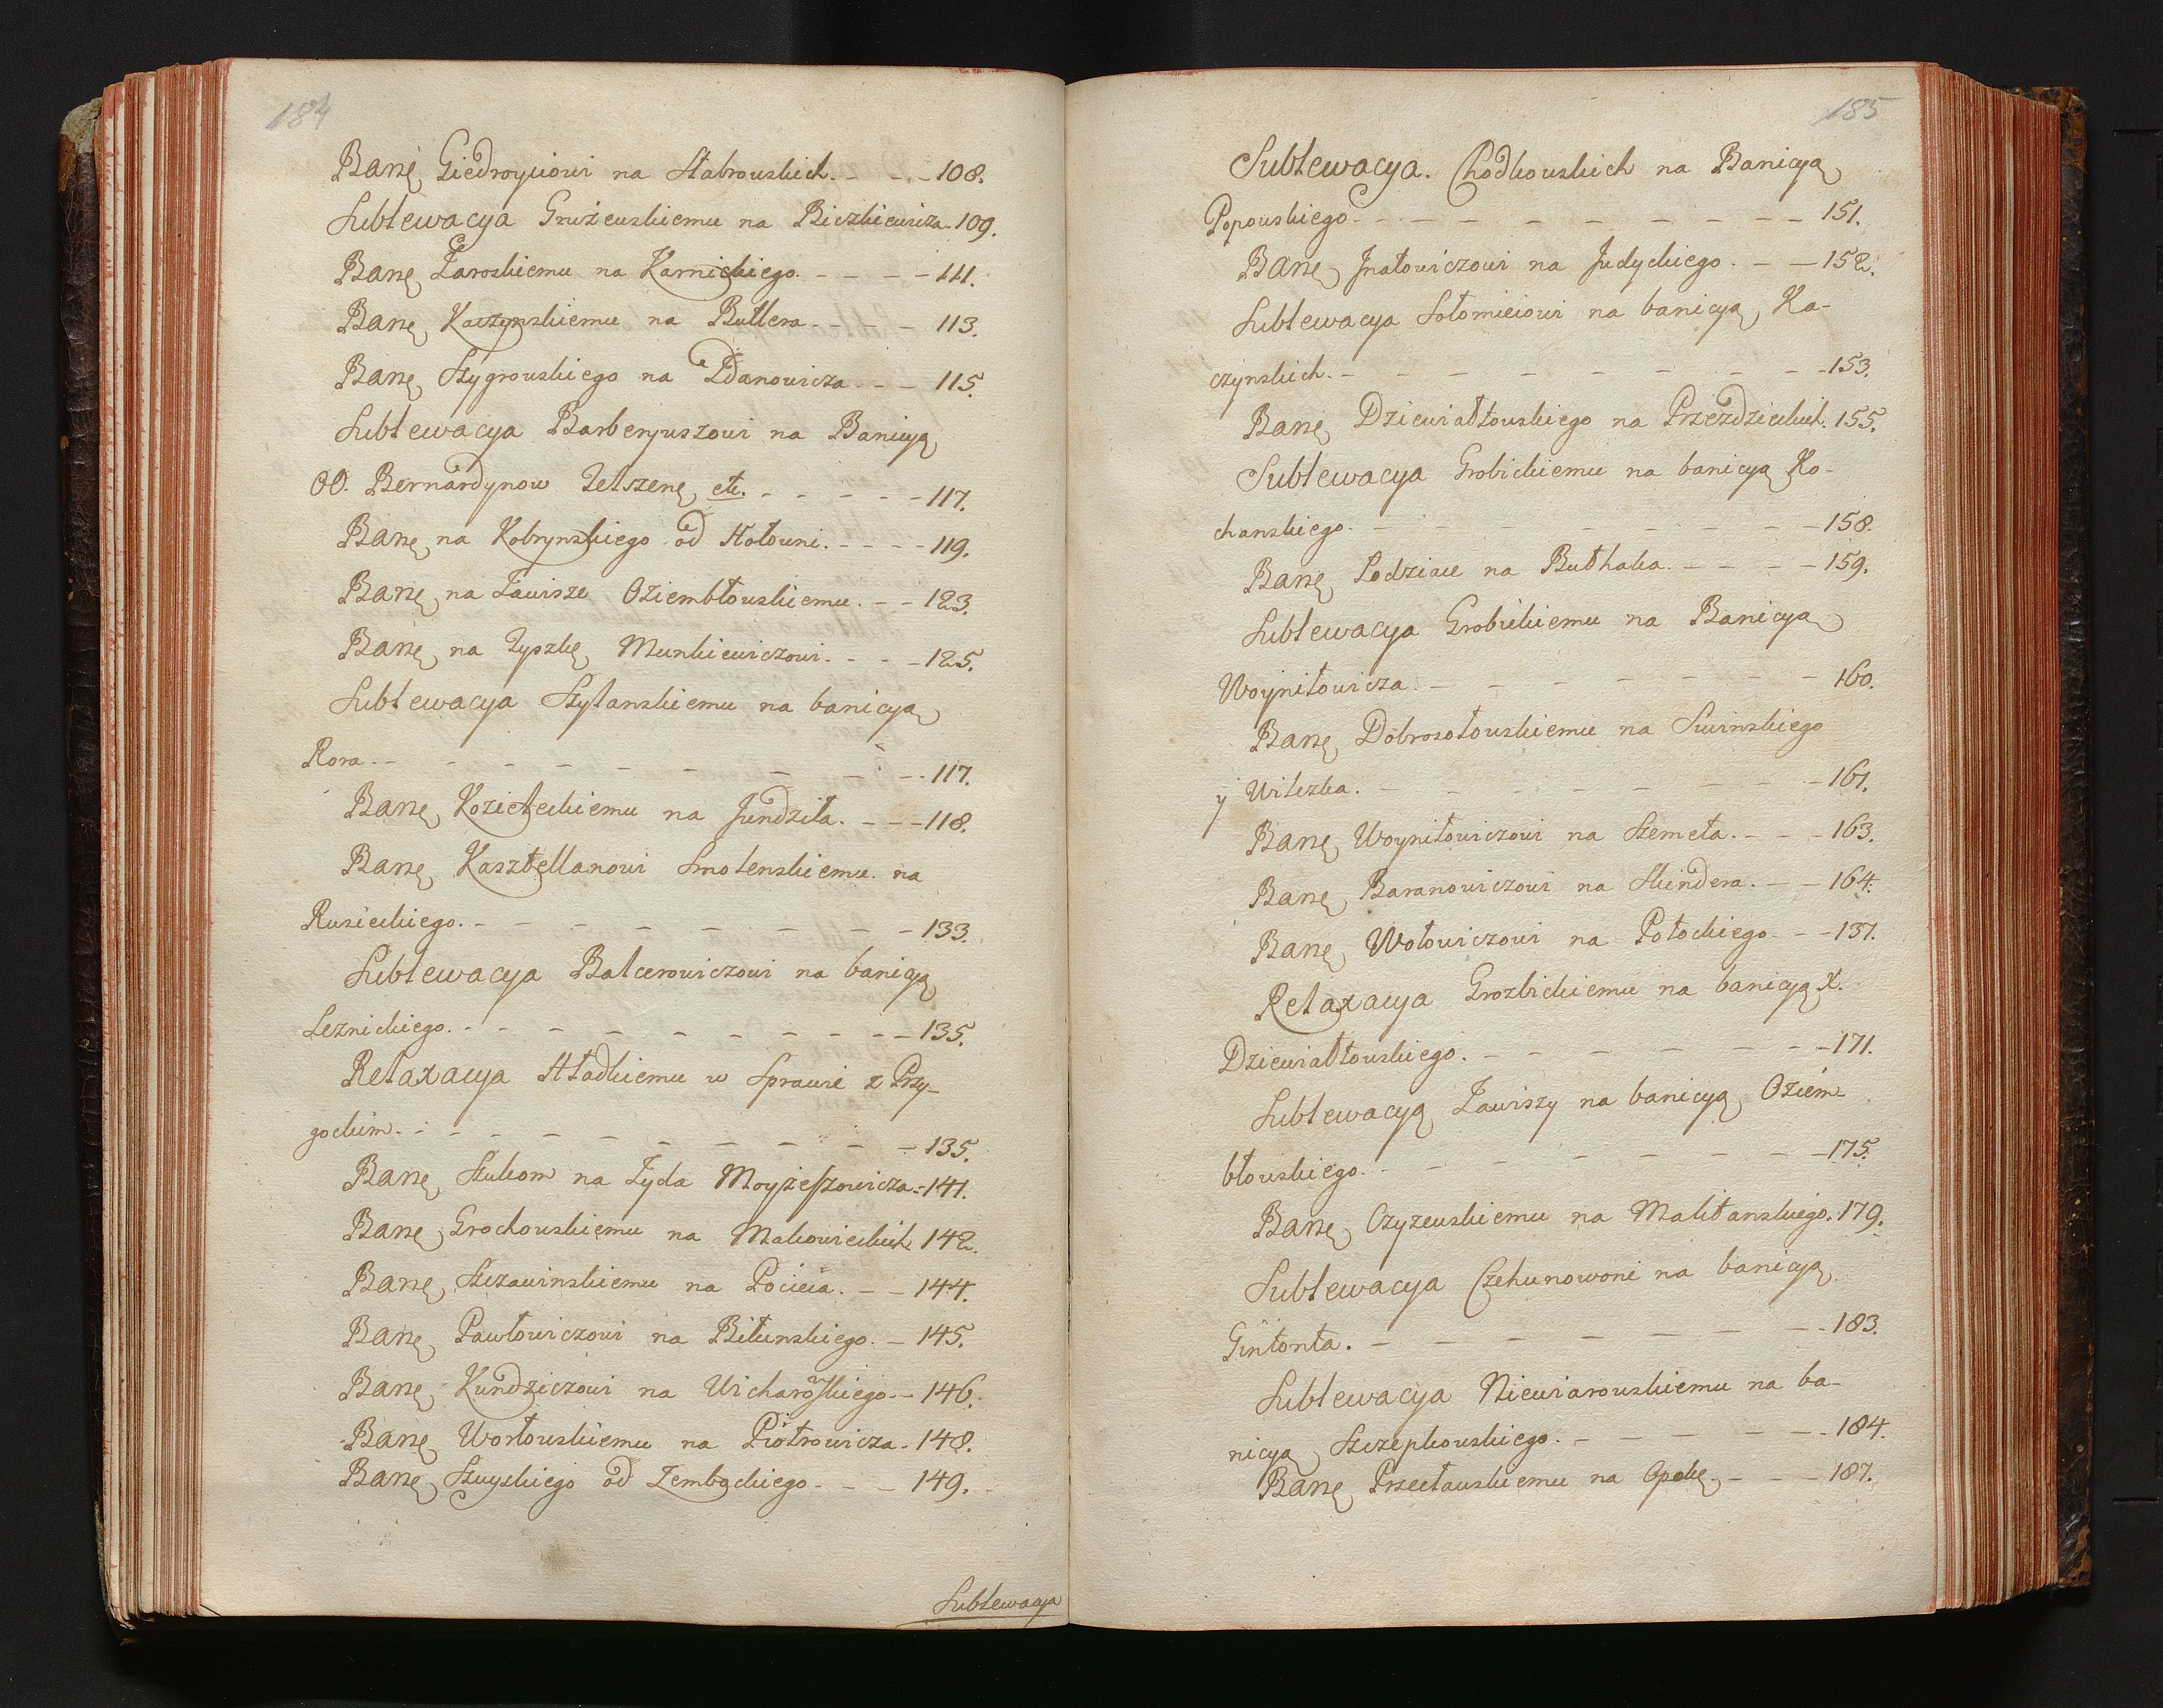 184
Banę Giedroyciowi na Stabrouskich. - - - 108.
Sublewacya Grużeuskiemu na Biczkiewicza. 109.
Banę Żaroskiemu na Karnickiego. - - - - 111.
Banę Kaczynskiemu na Butlera - - - - 113.
Banę Szygrouskiego na Zdanowicza - - - 115.
Sublewacya Barberyuszowi na Banicyą
OO. Bernardynow Telszenę etc. - - - - - - 117.
Banę na Kobrynskiego od Hołowni. - - - - 119.
Banę na Zawisze Oziembłouskiemu. - - 123.
Banę na Tyszkę Munkiewiczowi. - - - 125.
Sublewacya Szylanskiemu na banicyą
Rora. - - - - - - - - - - - 117.
Banę Kozieleckiemu na Jundziła. - - - 118.
Banę Kasztellanowi Smolenskiemu na
Rusieckiego. - - - - - - - - - 133.
Sublewacya Balcerowiczowi na banicyą
Leznickiego. - - - - - - - - - - 135.
Relaxacya Hładkiemu w Sprawie z Przy-
gockim. - - - - - - - - - - - 135.
Banę Szukom na Żyda Moyżeszowicza. - 141.
Banę Grochouskiemu na Makowieckich 142.
Banę Szczawinskiemu na Pocieia. - - 144.
Banę Pawłowiczowi na Bitunskiego. - 145.
Banę Kundziczowi na Wicharowskiego. - 146.
Banę Worłouskiemu na Piotrowicza. 148.
Banę Szuyskiego od Zembockiego - - - 149.
Sublewacya
185
Sublewacya. Chodkouskich na Banicyą
Popouskiego - - - - - - - - - - - 151.
Banę Jnatowiczowi na Judyckiego. - - 152.
Sublewacya Sołomieiowi na banicyą Ka-
czynskich. - - - - - - - - - - 153.
Banę Dziewiałtouskiego na Przezdzieckich. 155.
Sublewacya Grobickiemu na banicyą Ko-
chanskiego. - - - - - - - - - - 158.
Banę Podziace na Buthaka. - - - - 159.
Sublewacya Grobickiemu na Banicyą
Woyniłowicza. - - - - - - - - 160.
Banę Dobrosołouskiemu na Swinskiego
y Wilczka. - - - - - - - - - 161.
Banę Woyniłowiczowi na Szemeta. - - - 163.
Banę Baranowiczowi na Skindera. - - 164.
Banę Wołowiczowi na Potockiego. - - 137.
Relaxacya Grozbickiemu na banicyą X.
Dziewiałtouskiego. - - - - - - - 171.
Sublewacyą Zawiszy na banicyą Oziem-
błouskiego. - - - - - - - - - - 175.
Banę Czyzeuskiemu na Malitanskiego. 179.
Sublewacya Czehunowoni na banicyą
Gintonta. - - - - - - - - - 183.
Sublewacya Niewiarouskiemu na ba-
nicyą Szczepkouskiego. - - - - - - 184.
Banę Przecłauskiemu na Opokę. - - - 187.